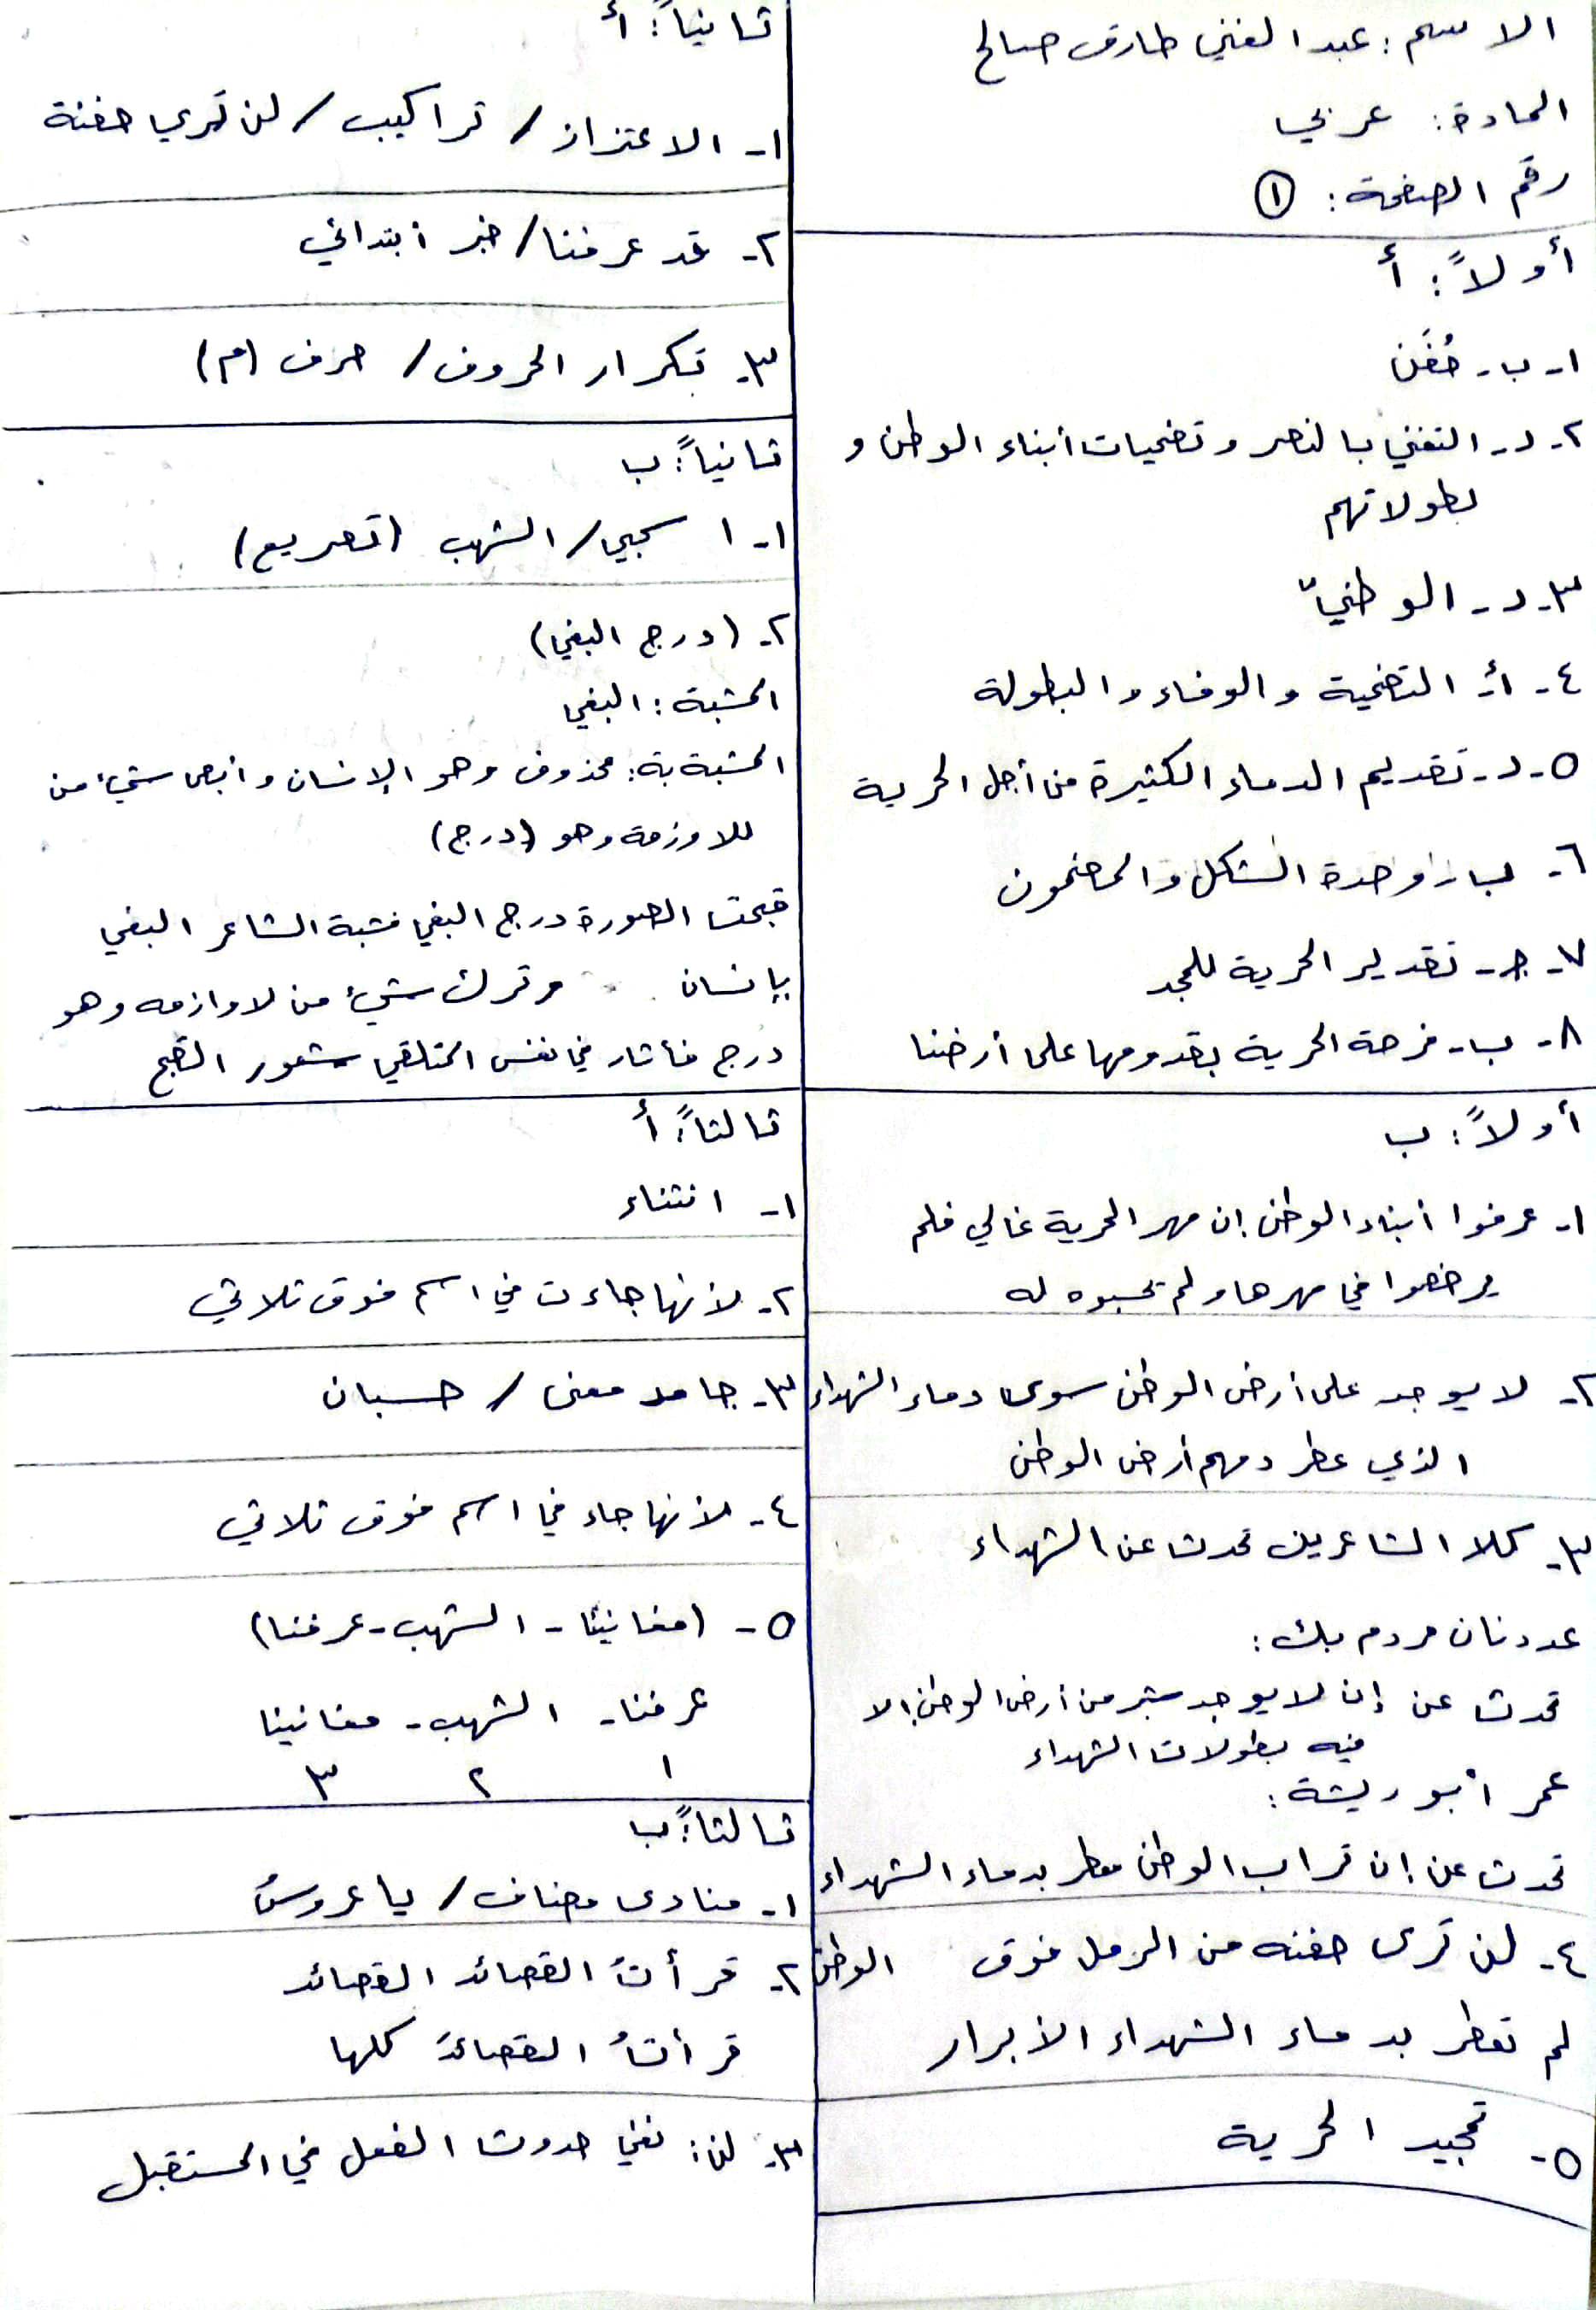 الاسم: عبد الغني طارق صالح
المادة: عربي
رقم الصفحة: ①
أولاً: أ
١- ب- حُفَن
٢- د- التغني بالنصر و تضحيات أبناء الوطن و
بطولاتهم
٣- د- الوطنيّ
٤- أ- التضحية و الوفاء و البطولة
٥- د- تقديم الدماء الكثيرة من أجل الحرية
٦- ب- وحدة الشكل و المضمون
٧- جـ- تقدير الحرية للمجد
٨- ب- فرحة الحرية بقدومها على أرضنا
أولاً: ب
١- عرفوا أبناء الوطن إن مهر الحرية غالي فلم
يرخصوا في مهرها و لم تحسبوه له
٢- لا يوجد على أرض الوطن سوى دماء الشهداء
الذي عطر دمهم أرض الوطن
٣- كلا الشاعرين تحدث عن الشهداء
عدنان مردم بك:
تحدث عن إن لا يوجد شبر من أرض الوطن إلا
فيه بطولات الشهداء
عمر أبو ريشة:
تحدث عن إن تراب الوطن معطر بدماء الشهداء
٤- لن ترى حفنه من الرمل فوق الوطن
لم تعطر بدماء الشهداء الأبرار
٥- تمجيد الحرية
ثانياً: أ
١- الاعتزاز / تراكيب / لن تري حفنة
٢- قد عرفنا / خبر ابتدائي
٣- تكرار الحروف / حرف (م)
ثانياً: ب
١- اسحبي / الشهب (تصريع)
٢- (درج البغي)
المشبة: البغي
المشبة بة: محذوف وهو الإنسان و أبقى شيء من
للاوزمة وهو (درج)
قبحت الصورة درج البغي فشبة الشاعر البغي
بإنسان و ترك شيء من لاوازمه وهو
درج فأثار في نفس المتلقي شعور القبح
ثالثاً: أ
١- انتناء
٢- لأنها جاءت في اسم فوق ثلاثي
٣- جامد معنى / حسبان
٤- لأنها جاء في اسم فوق ثلاثي
٥- (مغانينا - الشهب - عرفنا)
عرفنا - الشهب - مغانينا
١ ٢ ٣
ثالثاً: ب
١- منادى مضاف / يا عروسَ
٢- قرأتُ القصائد القصائد
قرأتُ القصائدَ كلها
٣- لن: نفي حدوث الفعل في المستقبل